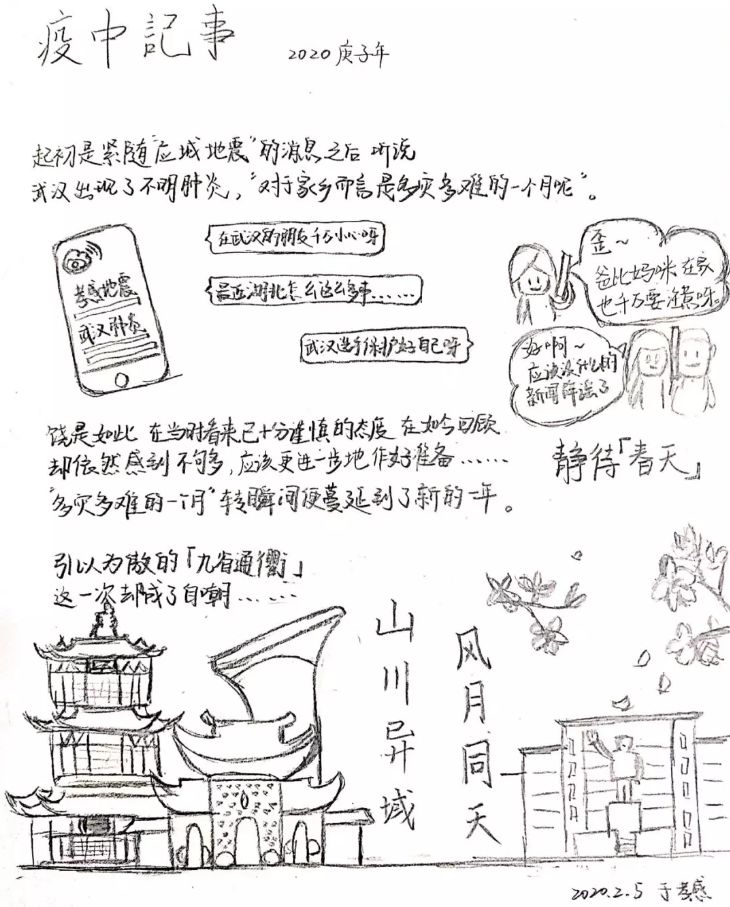 疫中記事
2020 庚子年
起初是紧随"应城地震"的消息之后 听说
武汉出现了不明肺炎，"对于家乡而言是多灾多难的一个月呢"。
孝感地震
武汉肺炎
在武汉的朋友千万小心呀
最近湖北怎么这么多事……
武汉进行保护好自己呀
歪~
爸比妈咪 在家
也千万要注意呀。
好啊~
应该没什么的
新闻辟谣了
饶是如此 在当时看来已十分谨慎的态度 在如今回顾
却依然感到不够多，应该更进一步地作好准备……
"多灾多难的一个月"转瞬间便蔓延到了新的一年。
静待「春天」
引以为傲的「九省通衢」
这一次却成了自嘲……
山川异域
风月同天
2020.2.5 于孝感